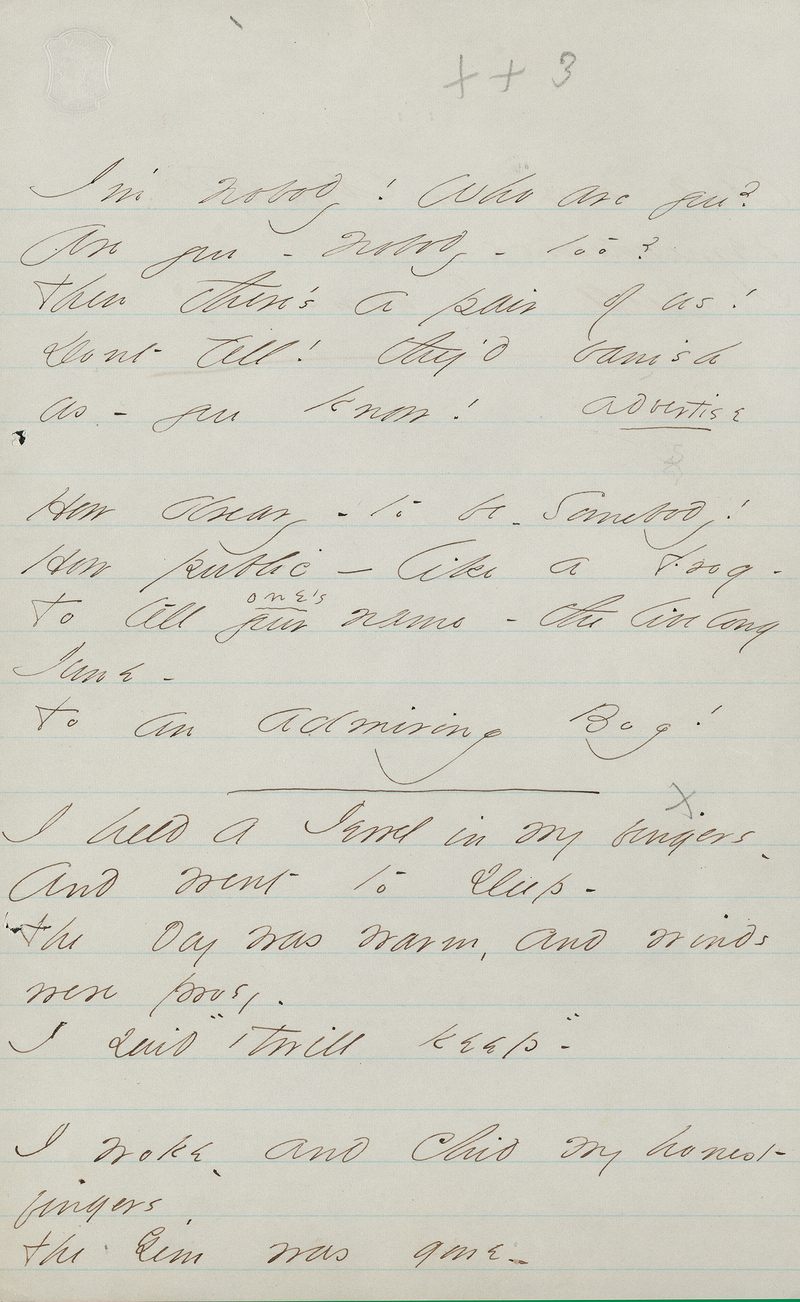 x x 3
I'm Nobody! Who are you?
Are you - Nobody - too?
Then there's a pair of us!
Dont tell! they'd banish
us - you know! advertise
How dreary - to be - Somebody!
How public - like a Frog -
one's
To tell your name - the livelong
June -
To an admiring Bog!
x
I held a Jewel in my fingers,
And went to sleep -
The day was warm, and winds
were prosy,
I said "'Twill keep" -
I woke, and chid my honest
fingers,
The Gem was gone -